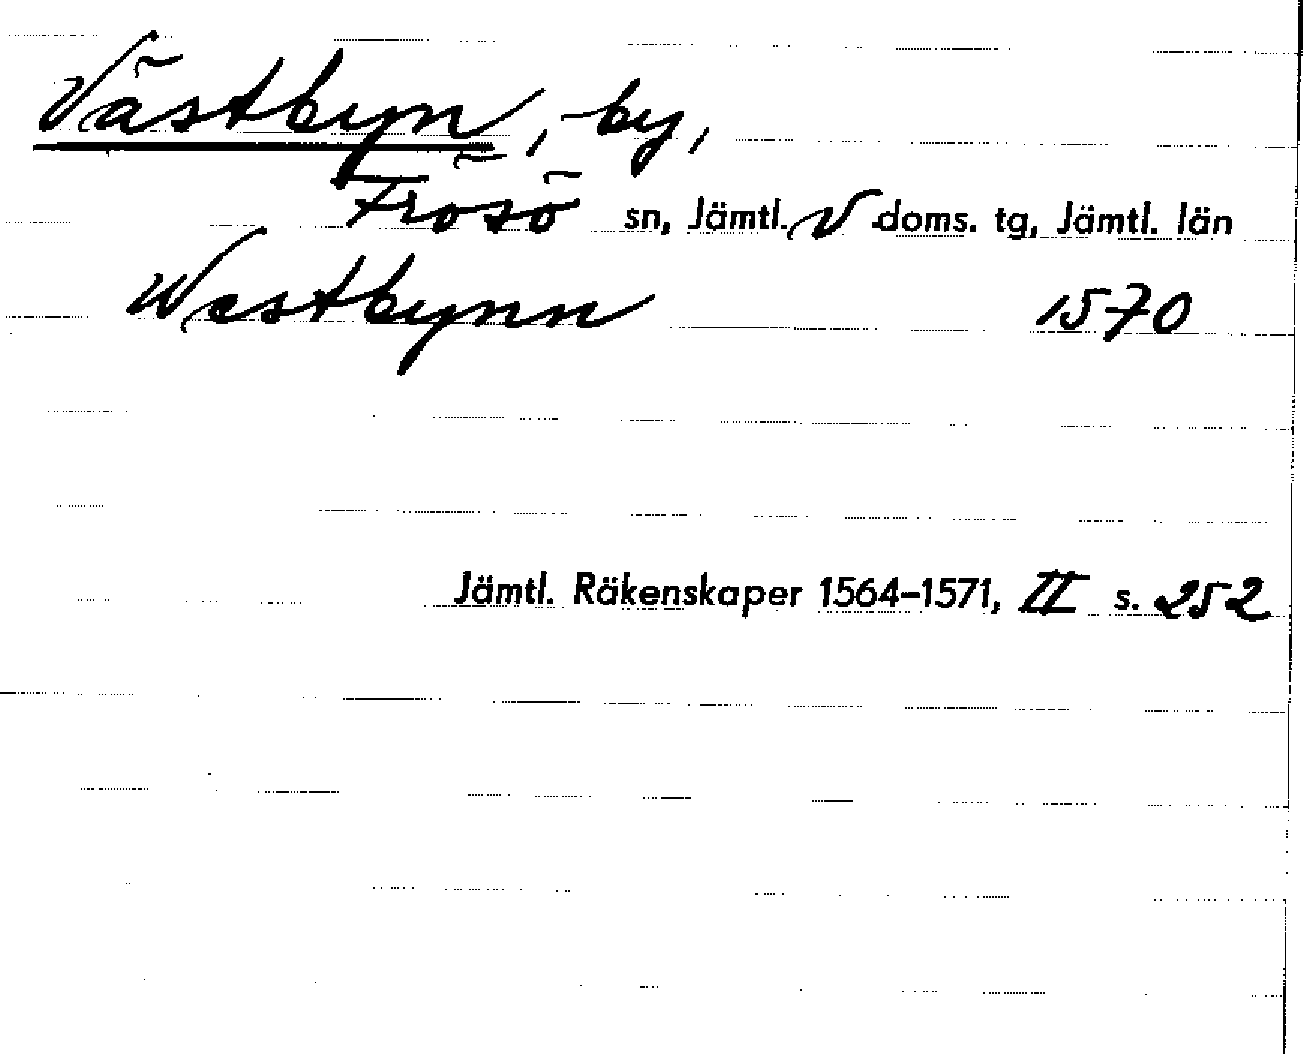 Västbyn, by,
Frösö sn, Jämtl. V doms. tg, Jämtl. län
Westbynn 1570
Jämtl. Räkenskaper 1564–1571, II s. 252